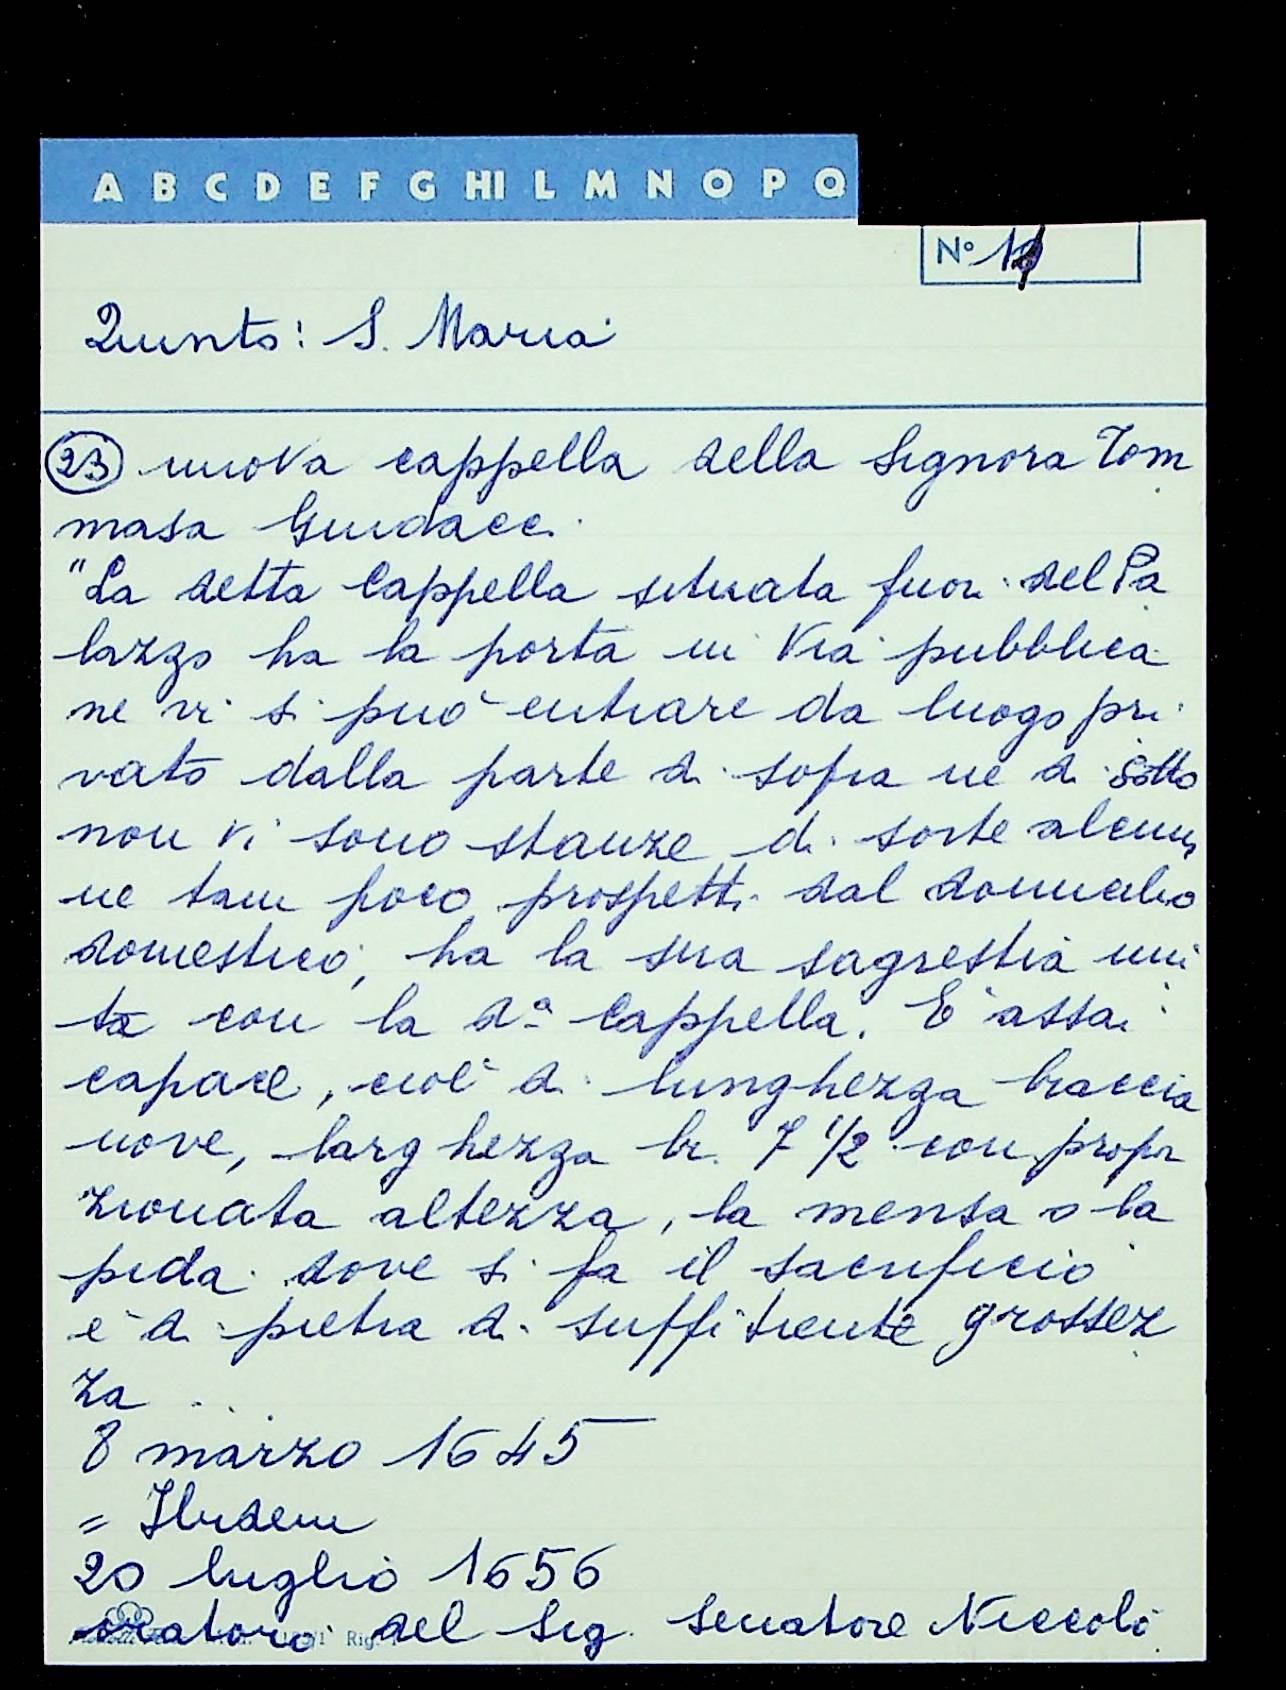 A B C D E F G HI L M N O P Q
N° 1
Quinto: S. Maria
23 nuova cappella della Signora Tom
masa Guidacci
"La detta Cappella situata fuori del Pa
lazzo ha la porta in Via pubblica
ne vi si può entrare da luogo pri
vato dalla parte di sopra ne di sotto
non vi sono stanze di sorte alcuna
ne tam poco prospetti dal domicilio
domestico, ha la sua sagrestia uni
ta con la d.ª Cappella. E' assai
capace, cioè di lunghezza braccia
nove, larghezza br. 7 1/2 con propor
zionata altezza, la mensa o la
pida dove si fa il sacrificio
è di pietra di sufficiente grossez
za ...
8 marzo 1645
= Ibidem
20 luglio 1656
oratorio del Sig. Senatore Niccolò